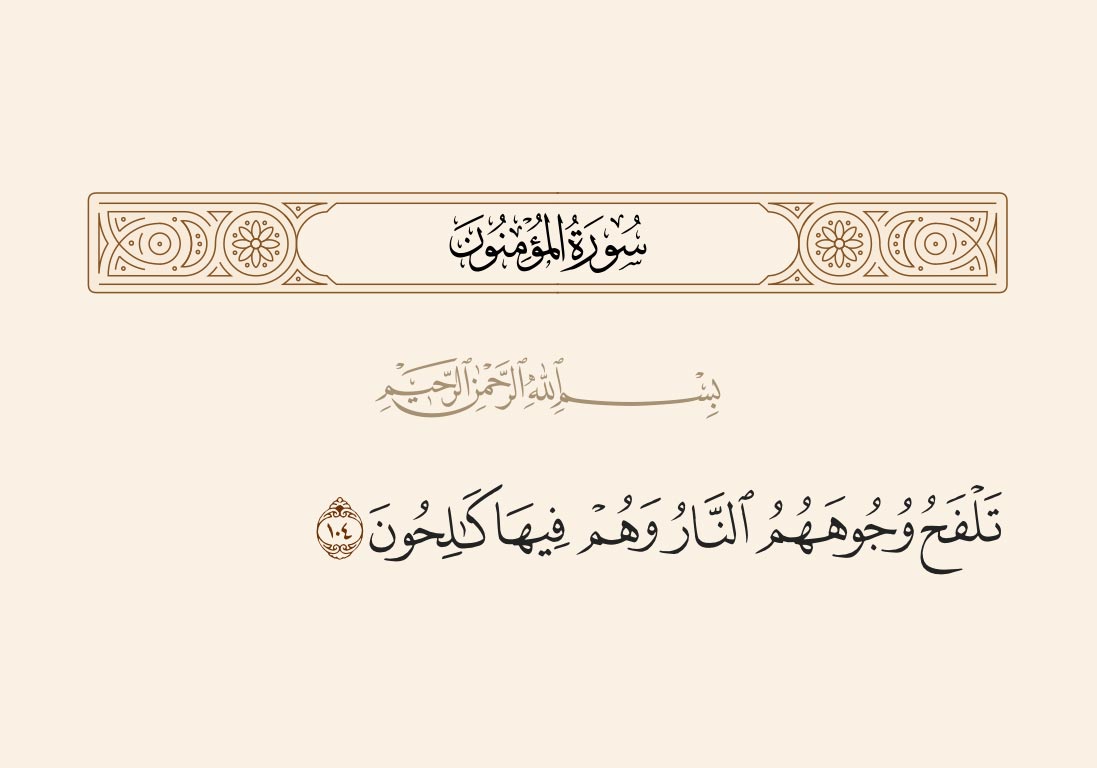 سُورَةُ المُؤْمِنُونَ
بِسْمِ ٱللَّهِ ٱلرَّحْمَٰنِ ٱلرَّحِيمِ
تَلْفَحُ وُجُوهَهُمُ ٱلنَّارُ وَهُمْ فِيهَا كَٰلِحُونَ ١٠٤